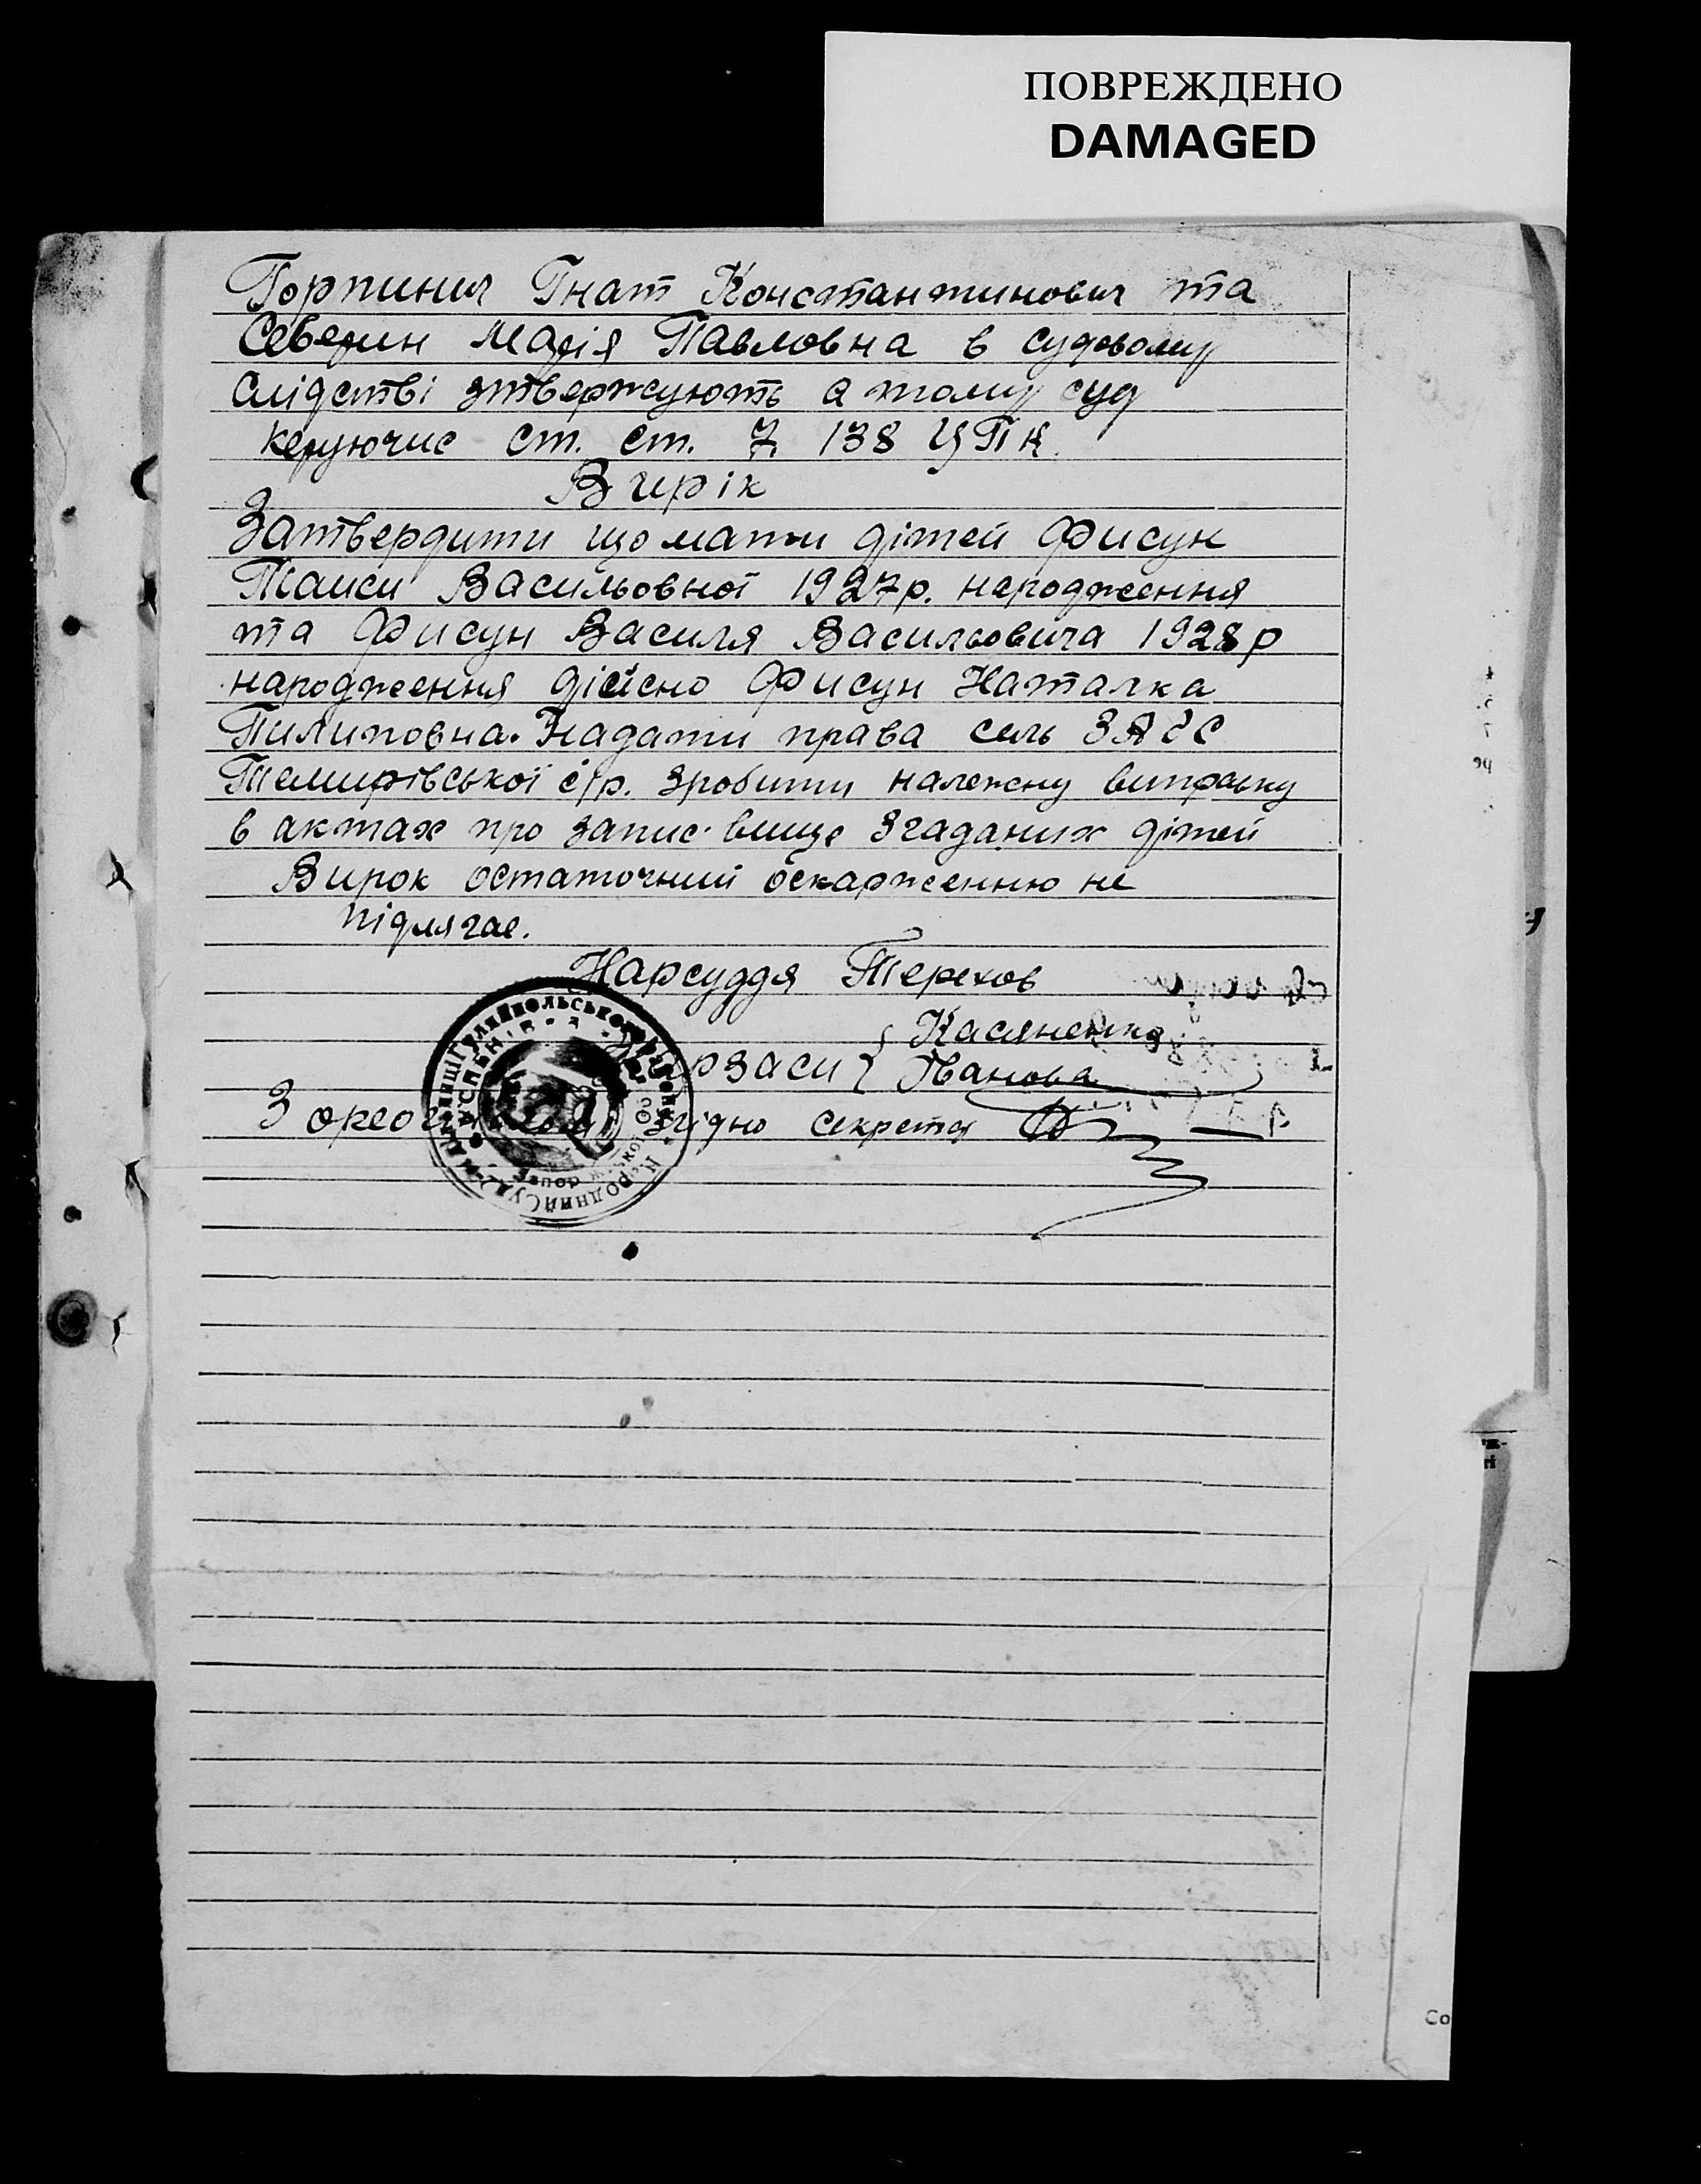 ПОВРЕЖДЕНО
DAMAGED
Горпинич Гнат Константинович та
Северин Марія Павловна в судовому
слідстві зтвержують а тому суд
керуючис ст. ст. 7 138 ЦПК
Вирік
Затвердити що мати дітей Фисун
Таиси Васильовної 1927р. народження
та Фисун Василя Васильовича 1928р
народження дійсно Фисун Наталка
Пилиповна. Надати права сель ЗАГС
Темирівської с/р. зробити належну виправку
в актах про запис вище згаданих дітей
Вирок остаточний оскарженню не
підлягае.
Нарсуддя Терехов
Касяненко
Нарзаси Иванова
З згідно секретар